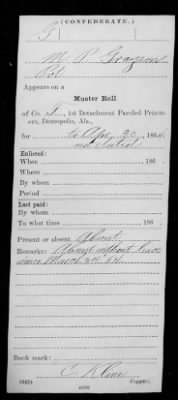 (CONFEDERATE.)
G
M. P. Grayson
Pvt.
Appears on a
Muster Roll
of Co. F, 1st Detachment Paroled Prison-
ers, Demopolis, Ala.,
for to Apr 30, 1864.
Enlisted:
When 186 .
Where
By whom
Period
Last paid:
By whom
To what time 186 .
Present or absent Absent
Remarks: Absent without leave
since March 3rd 64.
Book mark:
(642) Copyist.